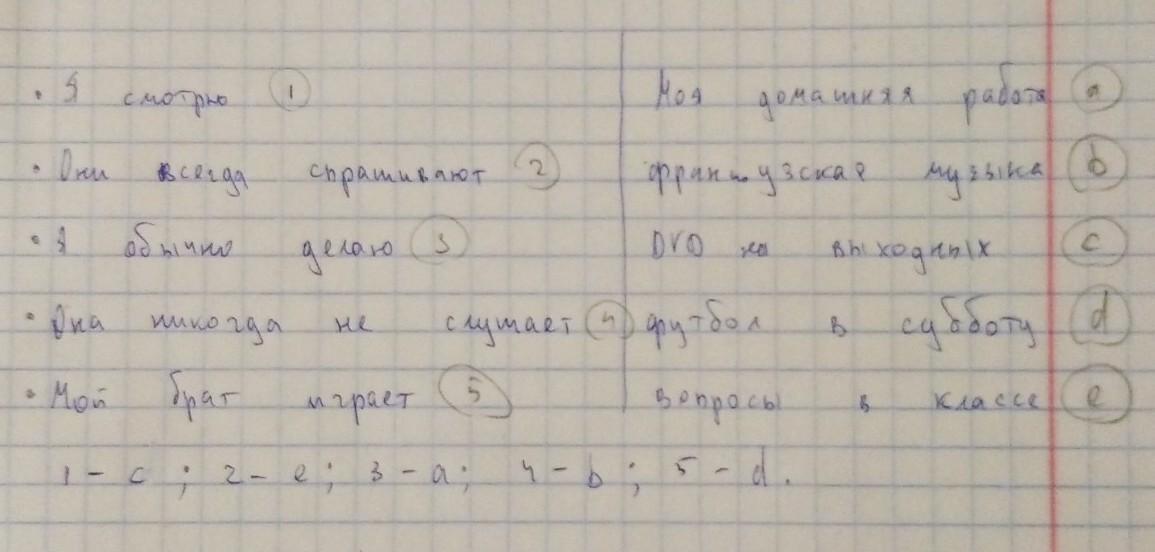 • Я смотрю 1 Моя домашняя работа a
• Они всегда спрашивают 2 французская музыка b
• Я обычно делаю 3 DVD на выходных c
• Она никогда не слушает 4 футбол в субботу d
• Мой брат играет 5 вопросы в классе e
1 – c ; 2 – e ; 3 – a ; 4 – b ; 5 – d .